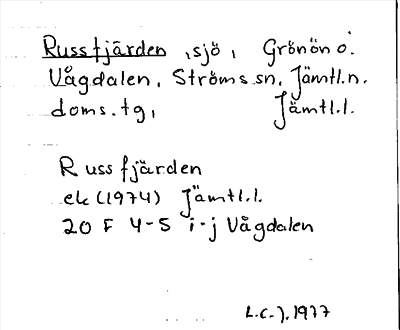 Russfjärden, sjö, Grönön o.
Vågdalen, Ströms sn, Jämtl.n.
doms.tg, Jämtl.l.
Russfjärden
ek (1974) Jämtl.l.
20 F 4-5 i-j Vågdalen
L.C.J. 1977